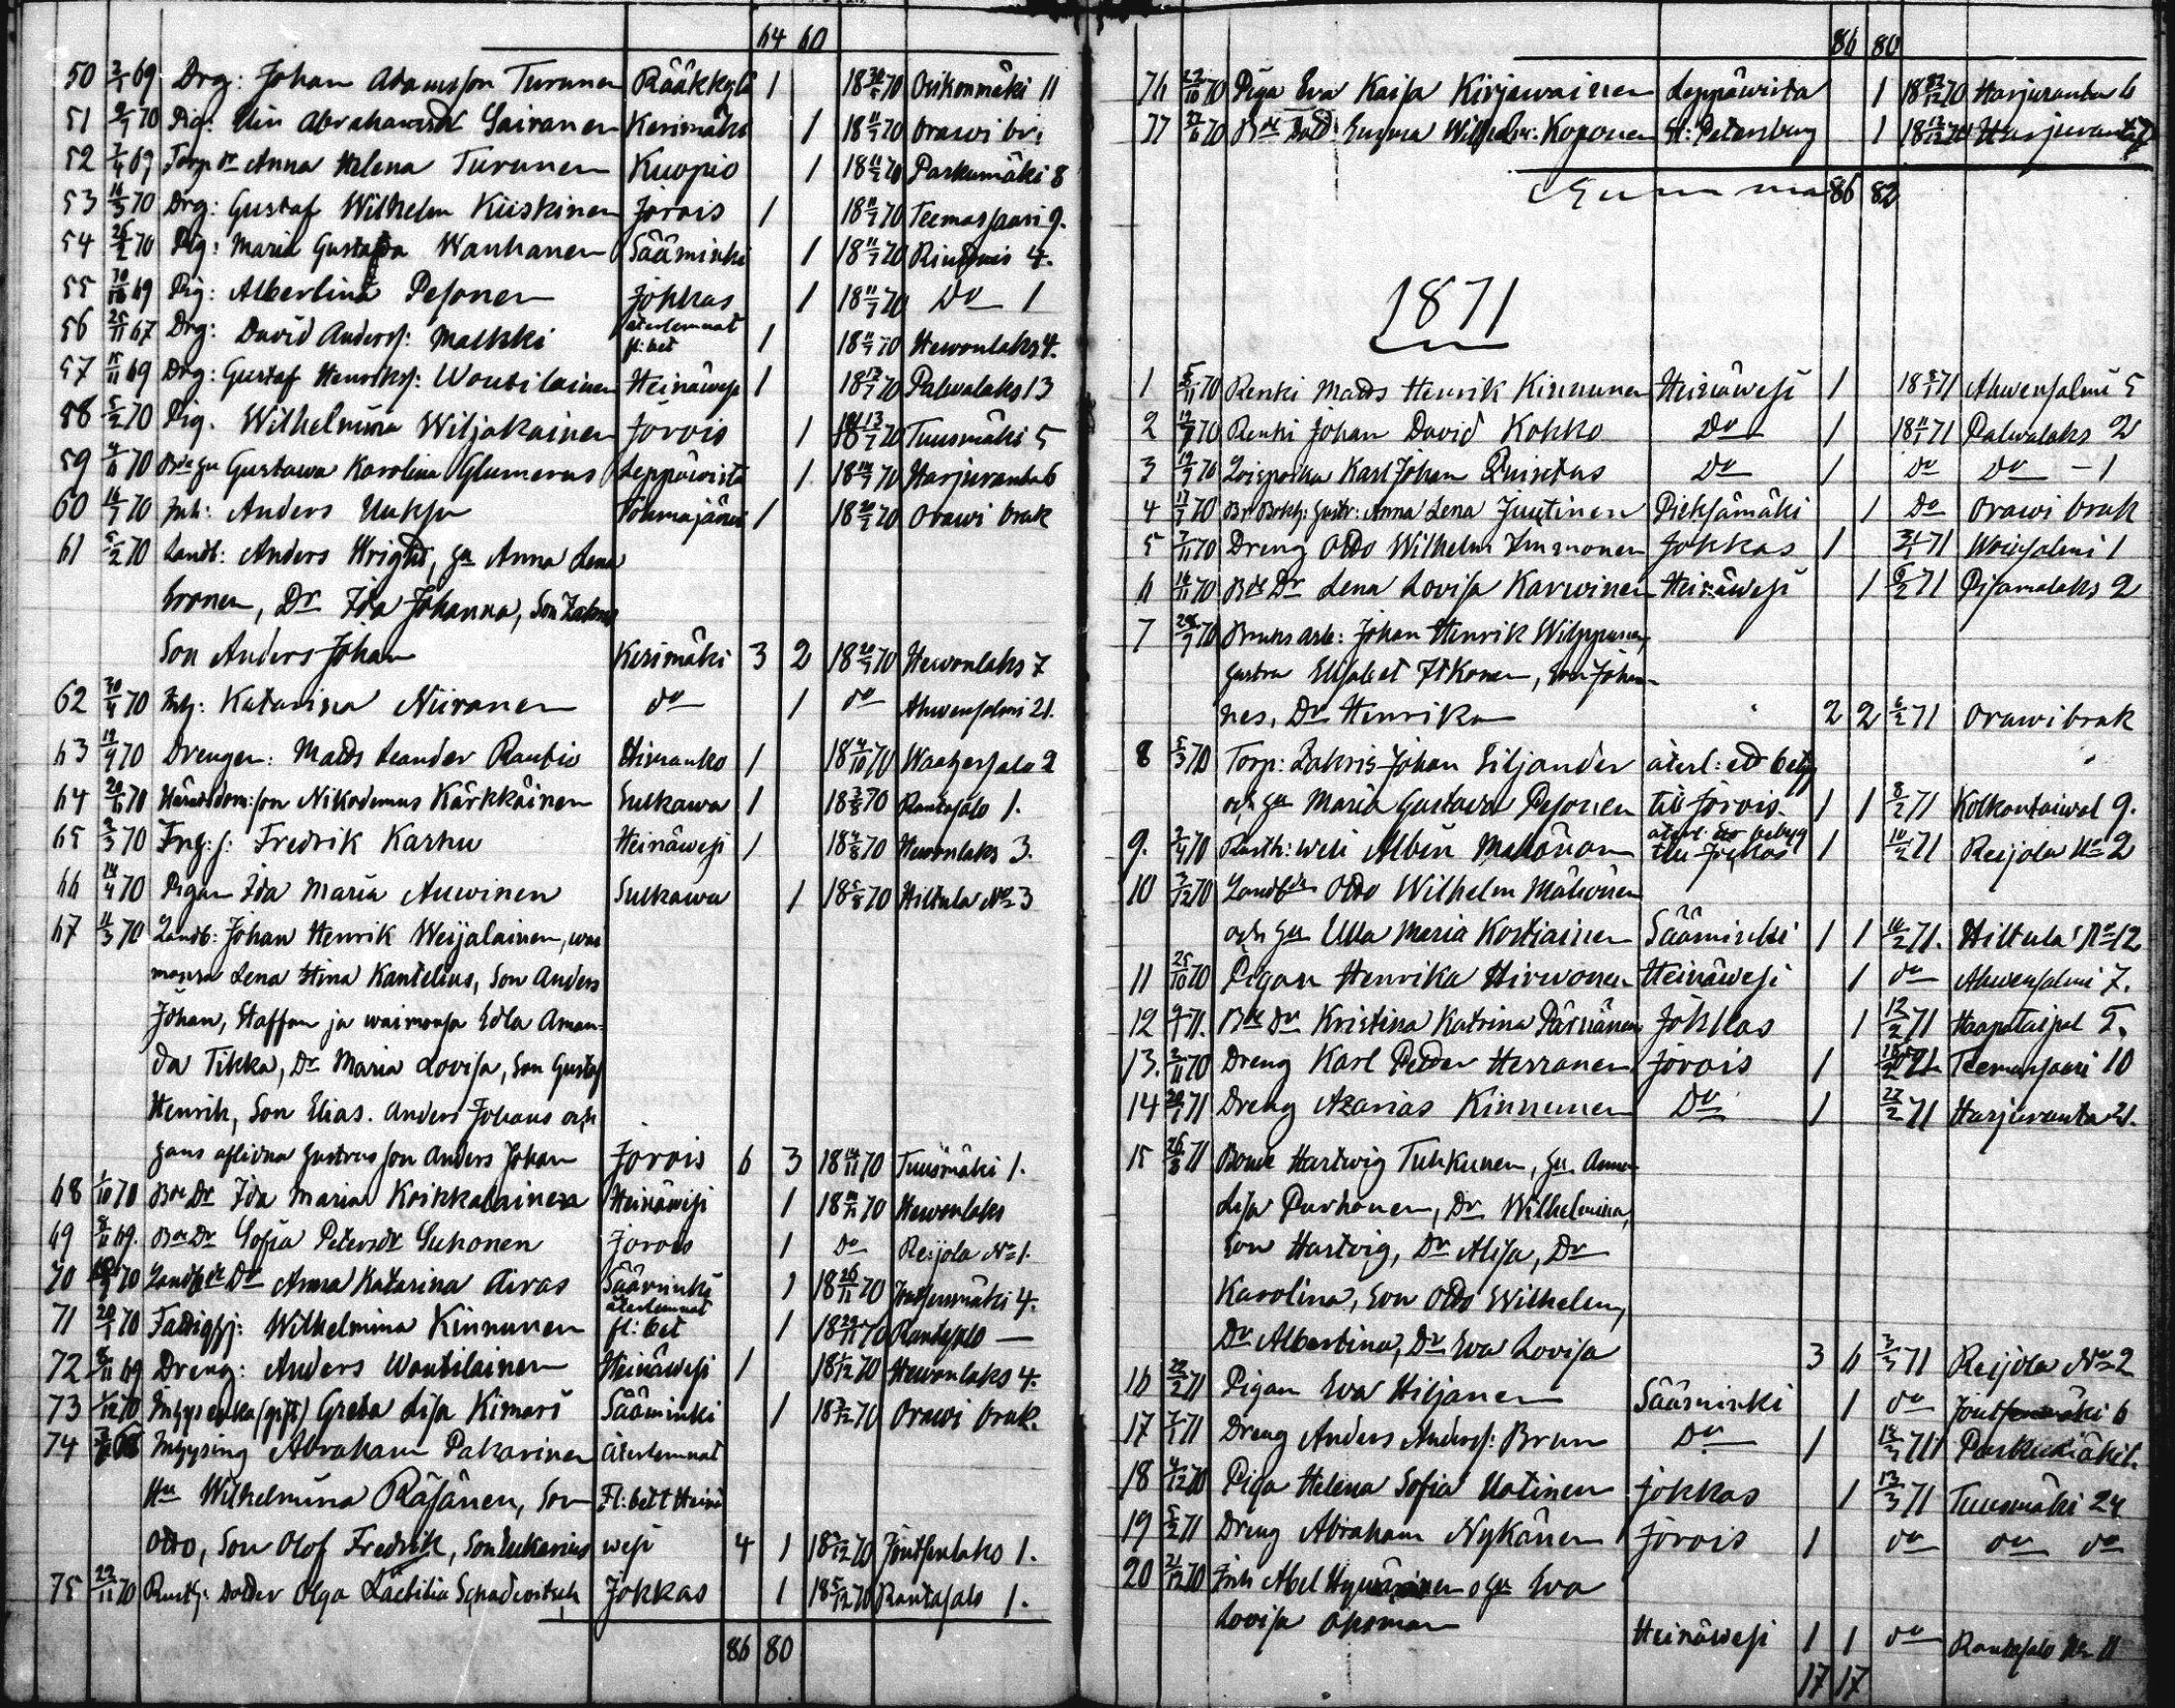 64 60
50 2/1 69 Drg: Johan Adamsson Turunen Rääkkylä 1 18 30/6 70 Oskonmäki 11
51 9/7 70 Pig: Elin Abrahamsdr Sairanen Kerimäki 1 18 11/7 70 Orawi bri
52 7/4 69 Torp dr Anna Helena Turunen Kuopio 1 18 11/7 70 Parkumäki 8
53 16/3 70 Drg: Gustaf Wilhelm Kiiskinen Jorois 1 18 11/7 70 Teemassaari 9.
54 26/2 70 Pig: Maria Gustafva Wanhanen Sääminki 1 18 11/7 70 4.
55 69 Pig: Albertina Pesonen Jokkas 1 18 11/7 70 Do 1
56 25/11 67 Drg: David Anderss: Malkki återlemnat fl: bet 1 18 11/7 70 Hewonlaks 4.
57 15/11 69 Drg: Gustaf Henrikss: Woutilainen Heinäwesi 1 18 12/7 70 Palwalaks 13
58 5/2 70 Pig. Wilhelmina Wiljakainen Jorois 1 18 13/7 70 Tuusmäki 5
59 70 Gustawa Karolina Glumerus Leppäwirta 1. 18 14/7 70 Harjuranta 6
60 16/7 70 Inh: Anders Uuksu Tohmajärwi 1 18 20/7 70 Orawi bruk
61 5/2 70 Landb: Anders Wright, hu Anna Lena
Eronen, Dr Ida Johanna, Son
Son Anders Johan Kerimäki 3 2 18 70 Hewonlaks 7
62 30/4 70 Inh: Katarina Niiranen do 1 do Ahwensalmi 21.
63 19/9 70 Drengen: Matts Leander Rautio Hirvanko 1 18 4/10 70 Waahersalo 2
64 70 Nikodemus Kärkkäinen Sulkawa 1 18 3/8 70 Rantasalo 1.
65 9/3 70 Fredrik Karhu Heinäwesi 1 18 4/8 70 Hewonlaks 3.
66 14/4 70 Pigan Ida Maria Auwinen Sulkawa 1 18 5/8 70 Hiltula No 3
67 11/3 70 Landb: Johan Henrik Weijalainen, wai
monsa Lena Stina Kantelius, Son Anders
Johan, Staffan ja waimonsa Edla Aman=
da Tikka, Dr Maria Lovisa, Son Gustaf
Henrik, Son Elias. Anders Johans och
hans aflidna hustrus son Anders Johan Jorois 6 3 18 14/11 70 Tuusmäki 1.
68 1/10 70 Bde Dr Ida Maria Koikkalainen Heinäwesi 1 18 70 Hewonlaks
69 69. Bde Dr Sofia Petersdr Suhonen Jorois 1 Do Reijola No 1.
70 70 Landb Dr Anna Katarina Airas Sääminki 1 18 26/11 70 Joutsenmäki 4.
71 20/1 70 Fattighj: Wilhelmina Kinnunen återlemnat fl: bet 1 18 29/11 70 Rantasalo —
72 8/11 69 Dreng: Anders Woutilainen Heinäwesi 1 18 1/12 70 Hewonlaks 4.
73 1/12 70 (gift) Greta Lisa Kimari Sääminki 1 18 3/12 70 Orawi bruk.
74 68 Inhysing Abraham Pakarinen återlemnat
Hu Wilhelmina Räsänen, Son Fl: bet t Heinä
Otto, Son Olof Fredrik, Son Eukarius wesi 4 1 18 5/12 70 Joutsenlaks 1.
75 22/11 70 Rusth: Dotter Olga Laetitia Schadewitsch Jokkas 1 18 5/12 70 Rantasalo 1.
86 80
86 80
76 22/10 70 Piga Eva Kaisa Kirjawainen Leppäwirta 1 18 22/12 70 Harjuranta 6
77 70 Emma Wilhelm: Koponen St: Petersburg 1 18 70 Harjuranta 7
Summa 86 82
1871
1 5/11 70 Renki Matts Henrik Kinnunen Heinäwesi 1 18 71 Ahwensalmi 5
2 70 Renki Johan David Kokko Do 1 18 11/1 71 Palwalaks 2
3 19/9 70 Loispoika Karl Johan Quisetus Do 1 Do Do — 1
4 17/7 70 Anna Lena Juutinen Pieksämäki 1 Do Orawi bruk
5 7/11 70 Dreng Otto Wilhelm Immonen Jokkas 1 31/1 71 Woinsalmi 1
6 16/11 70 Bde Dr Lena Lovisa Karwinen Heinäwesi 1 6/2 71 Pisamalaks 2
7 28/9 70 Bruks arb: Johan Henrik Wilppunen,
hustru Elisabet Itkonen, Son Johan-
nes, Dr Henrika 2 2 6/2 71 Orawi bruk
8 5/3 70 Torp: Zakris Johan Siljander återl: ett betyg
och hu Maria Gustawa Pesonen till Jorois. 1 1 8/2 71 Kolkontaiwal 9.
9. 2/4 70 Rusth: weli Albin Mallönen återl: betyg till Jokkas 1 10/2 71 Reijola No 2
10 3/12 70 Landb Otto Wilhelm Mälönen
och hu Ulla Maria Kostiainen Sääminki 1 1 10/2 71. Hiltula No 12
11 25/10 70 Pigan Henrika Hirwonen Heinäwesi 1 do Ahwensalmi 7.
12 9/1 71. Bde Dr Kristina Katrina Pärnänen Jokkas 1 12/2 71 Haapataipal 5.
13. 2/11 70 Dreng Karl Petter Herranen Jorois 1 71 Teemassaari 10
14 20/1 71 Dreng Azarias Kinnunen Do 1 22/2 71 Harjuranta 21.
15 71 Bonde Hartvig Tuhkunen, hu Anna
Lisa Purhonen, Dr Wilhelmina,
Son Hartvig, Dr Alisa, Dr
Karolina, Son Otto Wilhelm,
Dr Albertina, Dr Eva Lovisa 3 6 3/3 71 Reijola No 2
16 22/2 71 Pigan Eva Hiljanen Sääminki 1 do Joutsenmäki 6
17 7/1 71 Dreng Anders Anderss: Brun Do 1 12/3 71 Parkumäki 1.
18 4/12 70 Piga Helena Sofia Uotinen Jokkas 1 13/3 71 Tuusmäki 24
19 5/2 71 Dreng Abraham Nykänen Jorois 1 do do do
20 21/12 70 Inh Abel Hywärinen o hu Eva
Lovisa Heinäwesi 1 1 do Rantasalo No 11
17 17